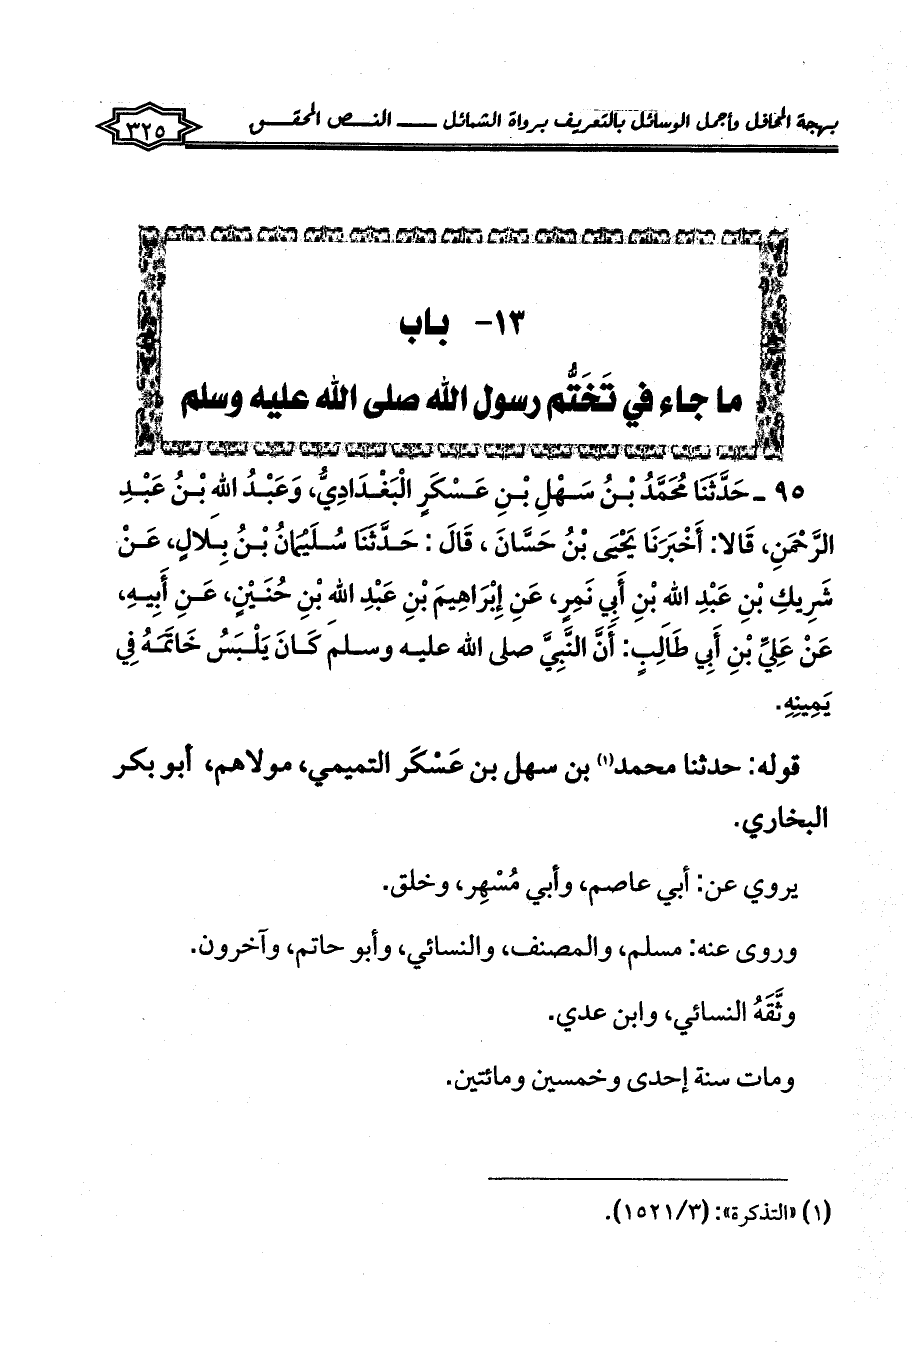 بهجة المحافل وأجمل الوسائل بالتعريف برواة الشمائل ـــ النـــص المحقـــق ٣٢٥
١٣- باب
ما جاء في تَخَتُّم رسول الله صلى الله عليه وسلم
٩٥ ـ حَدَّثَنَا مُحَمَّدُ بْـنُ سَـهْلِ بْـنِ عَـسْكَرٍ الْبَغْـدَادِيُّ، وَعَبْـدُ الله بْـنُ عَبْـدِ
الرَّحْمَنِ، قَالا: أَخْبَرَنَا يَحْيَى بْنُ حَسَّانَ ، قَالَ : حَـدَّثَنَا سُـلَيْمَانُ بْـنُ بِـلالٍ، عَـنْ
شَرِيكِ بْنِ عَبْدِ الله بْنِ أَبِي نَمِرٍ، عَنِ إِبْرَاهِيمَ بْنِ عَبْدِ الله بْنِ حُنَـيْنٍ، عَـنِ أَبِيـهِ،
عَنْ عَلِيِّ بْنِ أَبِي طَالِبٍ: أَنَّ النَّبِيَّ صلى الله عليـه وسـلم كَـانَ يَلْـبَسُ خَاتَمَـهُ فِي
يَمِينِهِ.
قوله: حدثنا محمد(١) بن سهل بن عَسْكَر التميمي، مولاهم، أبو بكر
البخاري.
يروي عن: أبي عاصم، وأبي مُسْهِر، وخلق.
وروى عنه: مسلم، والمصنف، والنسائي، وأبو حاتم، وآخرون.
وثَّقَهُ النسائي، وابن عدي.
ومات سنة إحدى وخمسين ومائتين.
(١) «التذكرة»: (٣/ ١٥٢١).